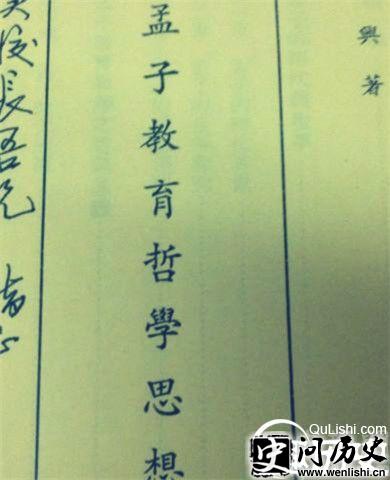 興著
孟子教育哲學思想
長吾兄
QuLishi.com
问历史
www.wenlishi.cn